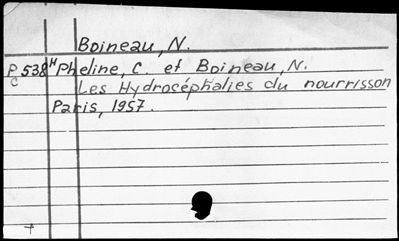 Boineau, N.
P 538 H Pheline, C. et Boineau, N.
C Les Hydrocéphalies du nourrisson
Paris, 1957.